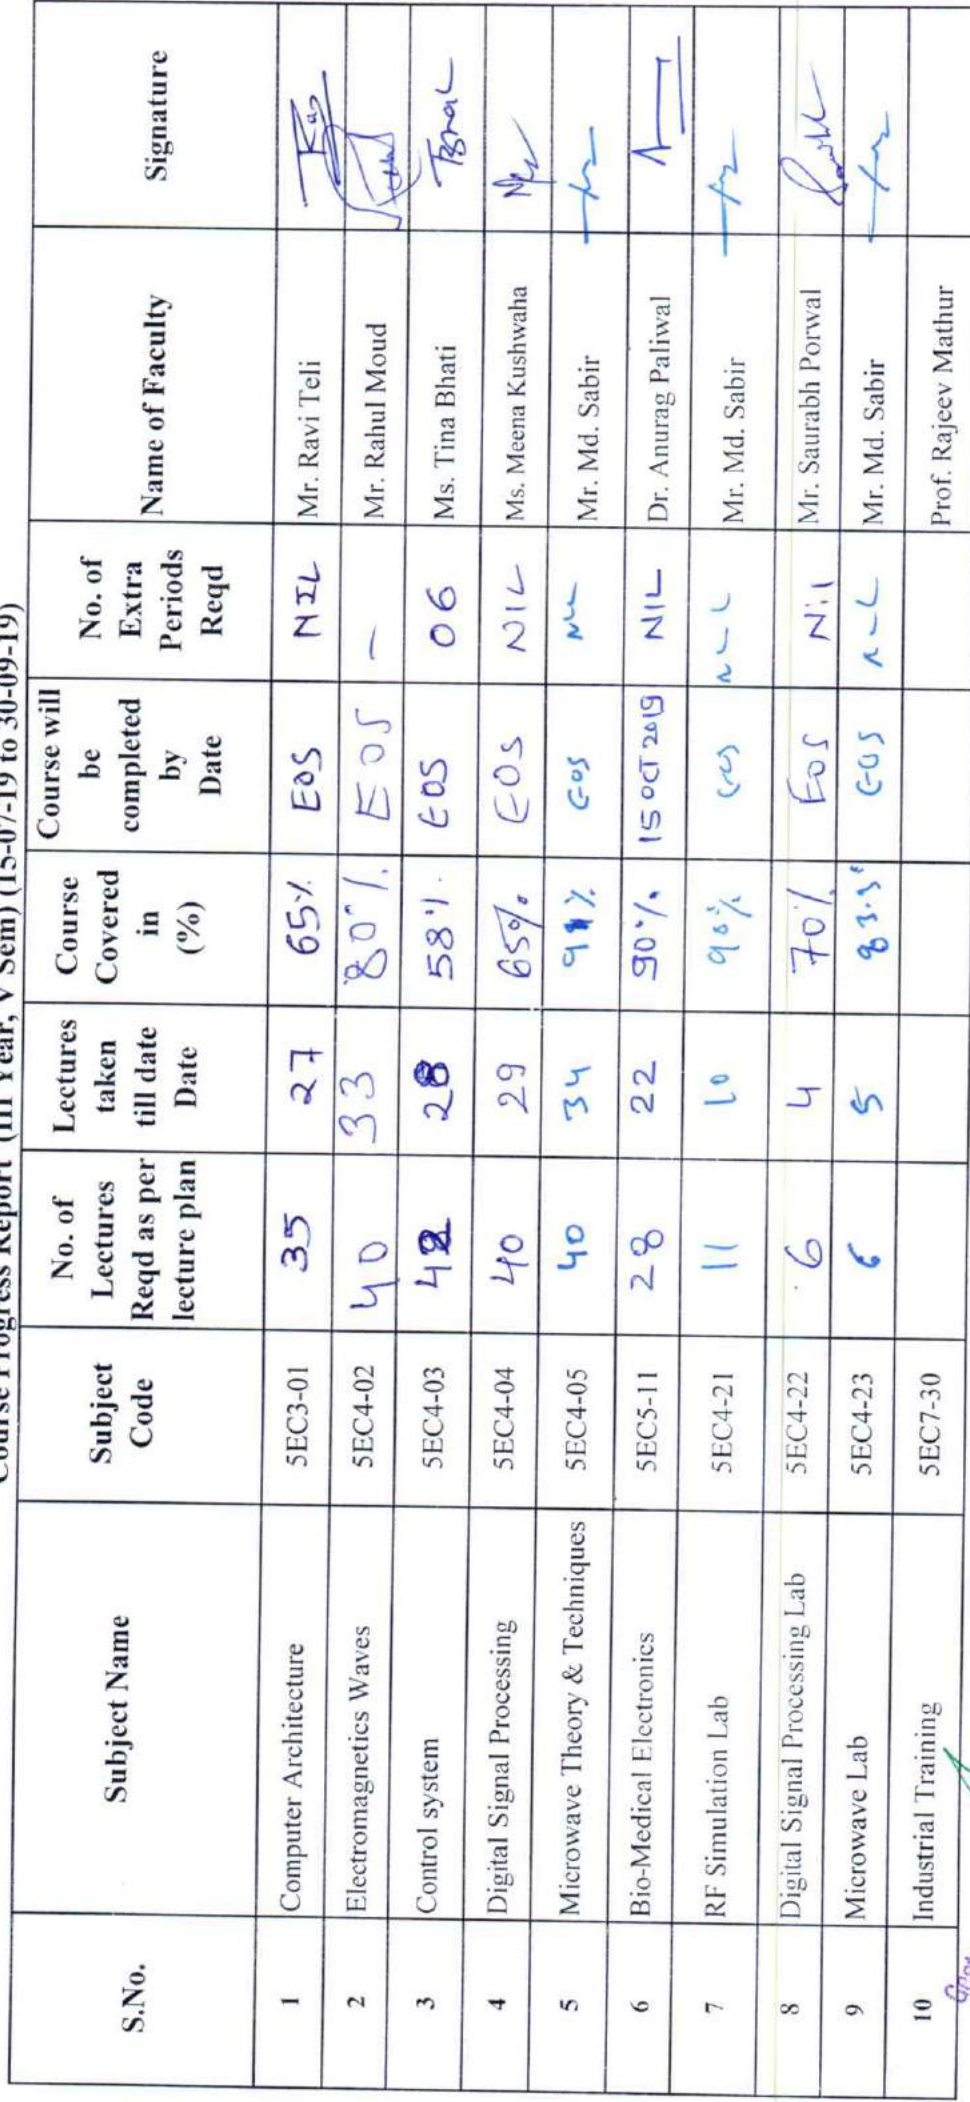 Course Progress Report (III Year, V Sem) (15-07-19 to 30-09-19)
S.No. Subject Name Subject Code No. of Lectures Reqd as per lecture plan Lectures taken till date Date Course Covered in (%) Course will be completed by Date No. of Extra Periods Reqd Name of Faculty Signature
1 Computer Architecture 5EC3-01 35 27 65% EOS NIL Mr. Ravi Teli
2 Electromagnetics Waves 5EC4-02 40 33 80% EOS - Mr. Rahul Moud
3 Control system 5EC4-03 48 28 58% EOS 06 Ms. Tina Bhati
4 Digital Signal Processing 5EC4-04 40 29 65% EOS NIL Ms. Meena Kushwaha
5 Microwave Theory & Techniques 5EC4-05 40 34 EOS Mr. Md. Sabir
6 Bio-Medical Electronics 5EC5-11 28 22 90% 15 OCT 2019 NIL Dr. Anurag Paliwal
7 RF Simulation Lab 5EC4-21 11 10 90% EOS Mr. Md. Sabir
8 Digital Signal Processing Lab 5EC4-22 6 4 70% EOS Nil Mr. Saurabh Porwal
9 Microwave Lab 5EC4-23 6 5 EOS Mr. Md. Sabir
10 Industrial Training 5EC7-30 Prof. Rajeev Mathur